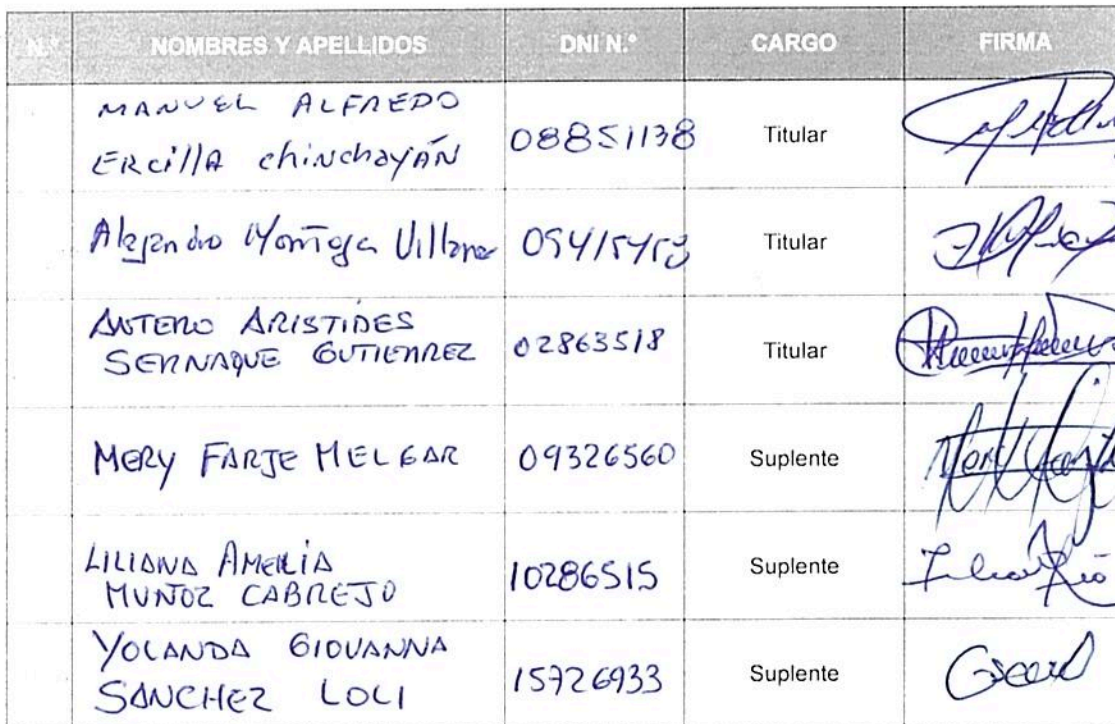 N.° NOMBRES Y APELLIDOS DNI N.° CARGO FIRMA
MANUEL ALFREDO
ERcillA chinchayÁN 08851138 Titular
Alejandro Montoya Titular
ANTERO ARISTIDES
SERNAQUE GUTIERREZ 02863518 Titular
MERY FARJE MELGAR 09326560 Suplente
LILIANA AMELIA
MUÑOZ CABREJO 10286515 Suplente
YOLANDA GIOVANNA
SANCHEZ LOLI 15726933 Suplente